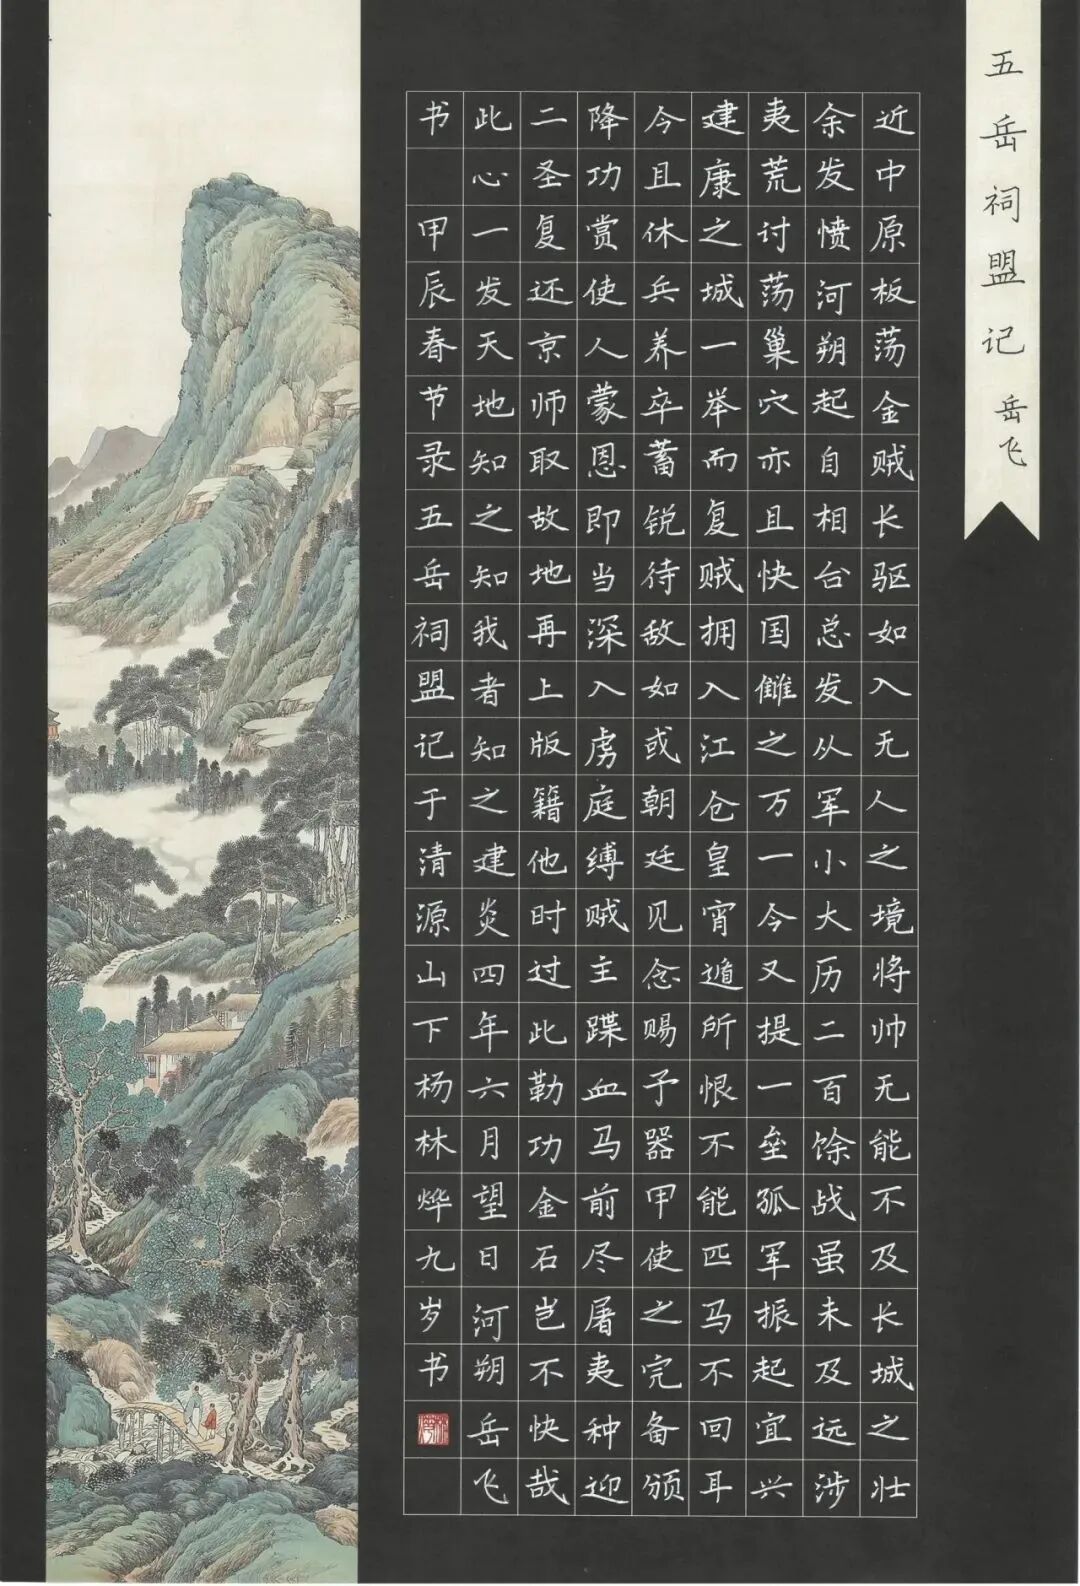 五岳祠盟记 岳飞
近中原板荡金贼长驱如入无人之境将帅无能不及长城之壮
余发愤河朔起自相台总发从军小大历二百馀战虽未及远涉
夷荒讨荡巢穴亦且快国雠之万一今又提一垒孤军振起宜兴
建康之城一举而复贼拥入江仓皇宵遁所恨不能匹马不回耳
今且休兵养卒蓄锐待敌如或朝廷见念赐予器甲使之完备颁
降功赏使人蒙恩即当深入虏庭缚贼主蹀血马前尽屠夷种迎
二圣复还京师取故地再上版籍他时过此勒功金石岂不快哉
此心一发天地知之知我者知之建炎四年六月望日河朔岳飞
书 甲辰春节录五岳祠盟记于清源山下杨林烨九岁书